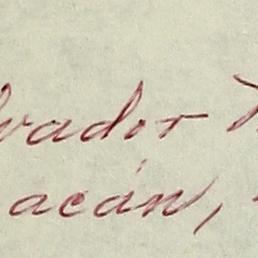 lvador
acán,